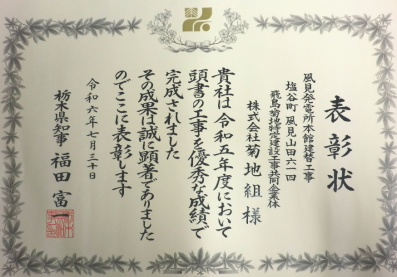 表彰状
風見発電所本館建替工事
塩谷町 風見山田六一四
飛鳥菊地特定建設工事共同企業体
株式会社 菊地組 様
貴社は令和五年度において
頭書の工事を優秀な成績で
完成されました
その成果は誠に顕著でありました
のでここに表彰します
令和六年七月三十日
栃木県知事 福田富一